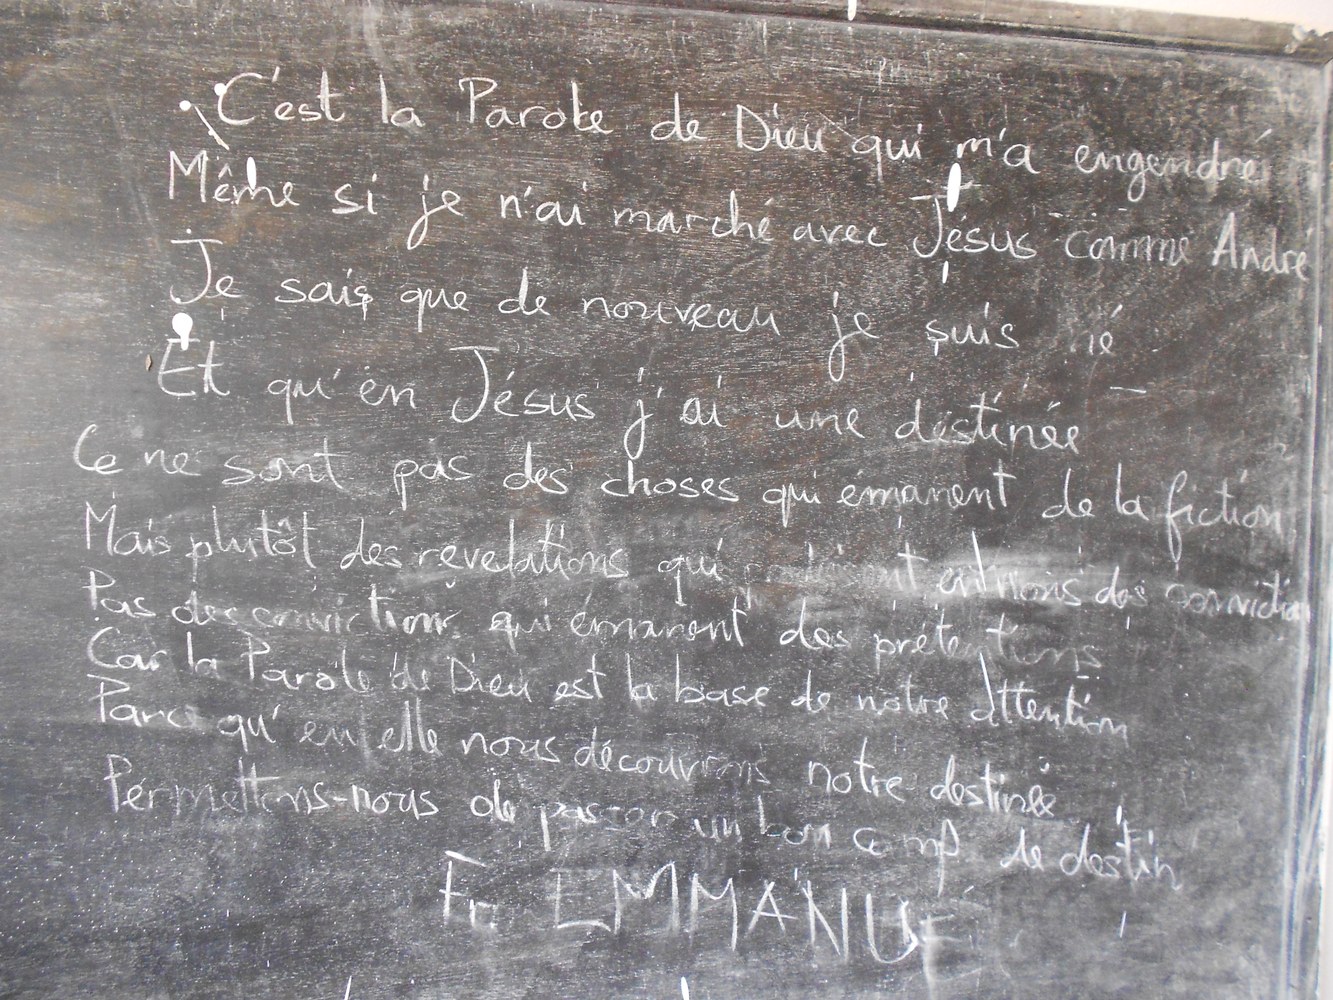 C'est la Parole de Dieu qui m'a engendré
Même si je n'ai marché avec Jésus comme André
Je sais que de nouveau je suis né
Et qu'en Jésus j'ai une destinée
Ce ne sont pas des choses qui émanent de la fiction
Mais plutôt des révelations qui en nous des conviction
Pas des convictions qui émanent des prétentions
Car la Parole de Dieu est la base de notre attention
Parce qu'en elle nous découvrons notre destinée
Permettons-nous de passer un bon camp de destin
Fr EMMANUE